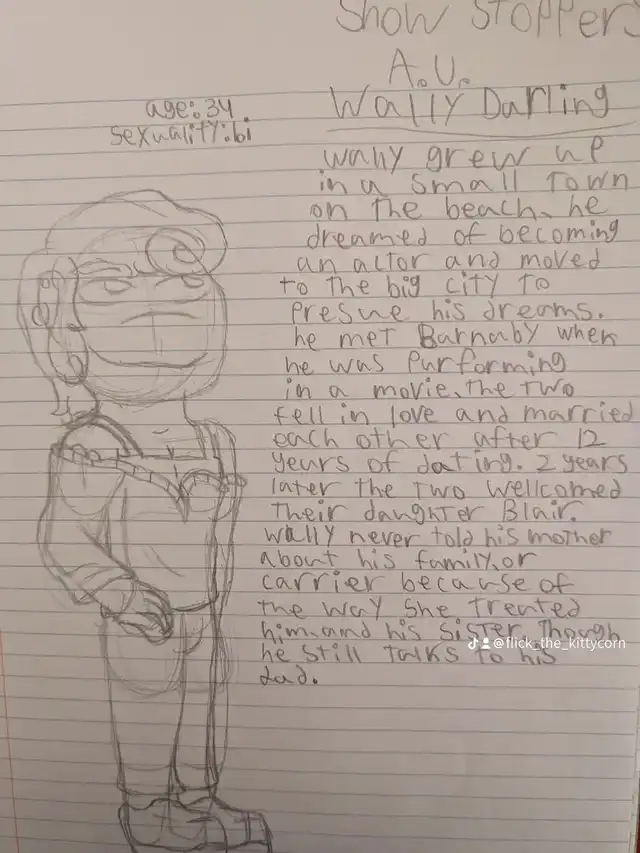 Show Stoppers
A.U.
Wally Darling
age: 34
sexuality: bi
wally grew up
in a small town
on the beach, he
dreamed of becoming
an actor and moved
to the big city to
presue his dreams.
he met Barnaby when
he was purforming
in a movie. the two
fell in love and married
each other after 12
years of dating. 2 years
later the two wellcomed
their daughter Blair.
wally never told his mother
about his family, or
carrier because of
the way she treated
him, and his sister, though
@flick_the_kittycorn
he still talks to his
dad.